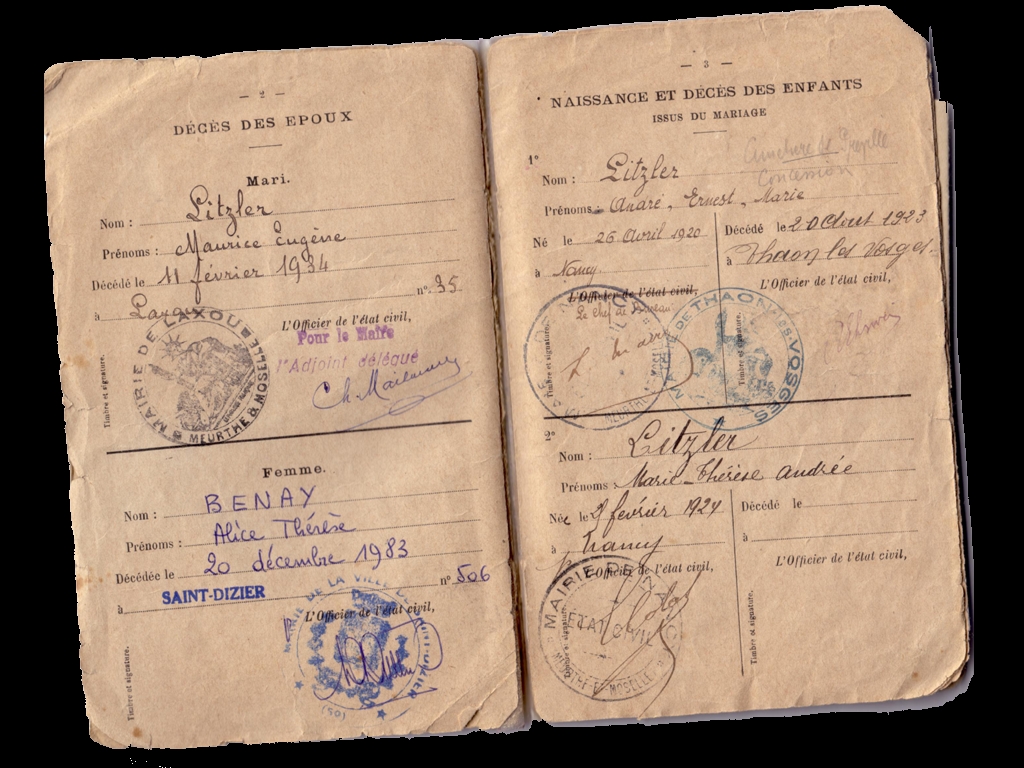 — 2 —
DÉCÈS DES EPOUX
Mari.
Nom : Litzler
Prénoms : Maurice Eugène
Décédé le 11 février 1934
à Laxou nº 35
L'Officier de l'état civil,
Pour le Maire
l'Adjoint délégué
Timbre et signature.
MAIRIE DE LAXOU
MEURTHE & MOSELLE
Femme.
Nom : BENAY
Prénoms : Alice Thérèse
Décédée le 20 décembre 1983
à SAINT-DIZIER nº 506
L'Officier de l'état civil,
Timbre et signature.
DE LA VILLE DE
— 3 —
NAISSANCE ET DÉCÈS DES ENFANTS
ISSUS DU MARIAGE
concession
1º
Nom : Litzler
Prénoms : André, Ernest, Marie
Né le 26 Avril 1920
à Nancy
L'Officier de l'état civil,
Le Chef de Bureau
Timbre et signature.
MEURTHE
Décédé le 20 Aout 1923
à Thaon les Vosges.
L'Officier de l'état civil,
Timbre et signature.
MAIRIE DE THAON-LES-VOSGES
2º
Nom : Litzler
Prénoms : Marie-Thérèse Andrée
Née le 9 février 1924
à Nancy
L'Officier de l'état civil,
Timbre et signature.
MAIRIE DE
ÉTAT CIVIL
MEURTHE-ET-MOSELLE
Décédé le
à
L'Officier de l'état civil,
Timbre et signature.